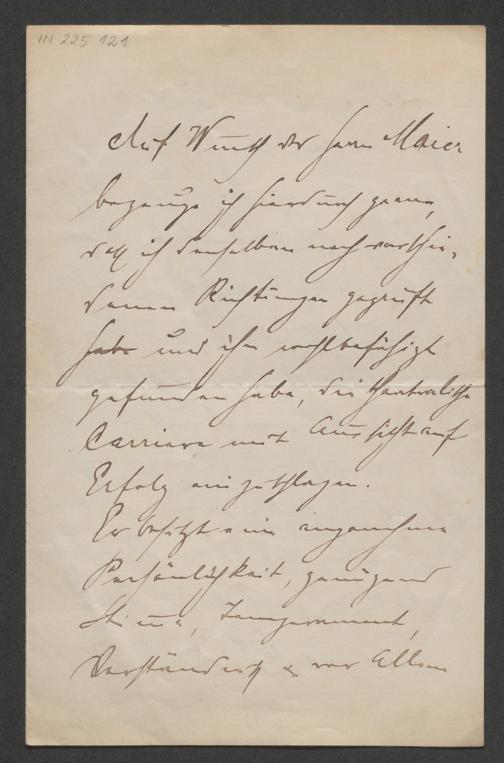 IN 225 121
Auf Wunsch des Herrn Maier
bezeuge ich hierdurch gerne,
daß ich denselben nach verschie-
denen Richtungen geprüft
habe und ihn wohlbefähigt
gefunden habe, die theatralische
Carriere mit Aussicht auf
Erfolg einzuschlagen.
Er besitzt eine angenehme
Persönlichkeit, genügend
Stimme, Temperament,
Verständniß & vor Allem